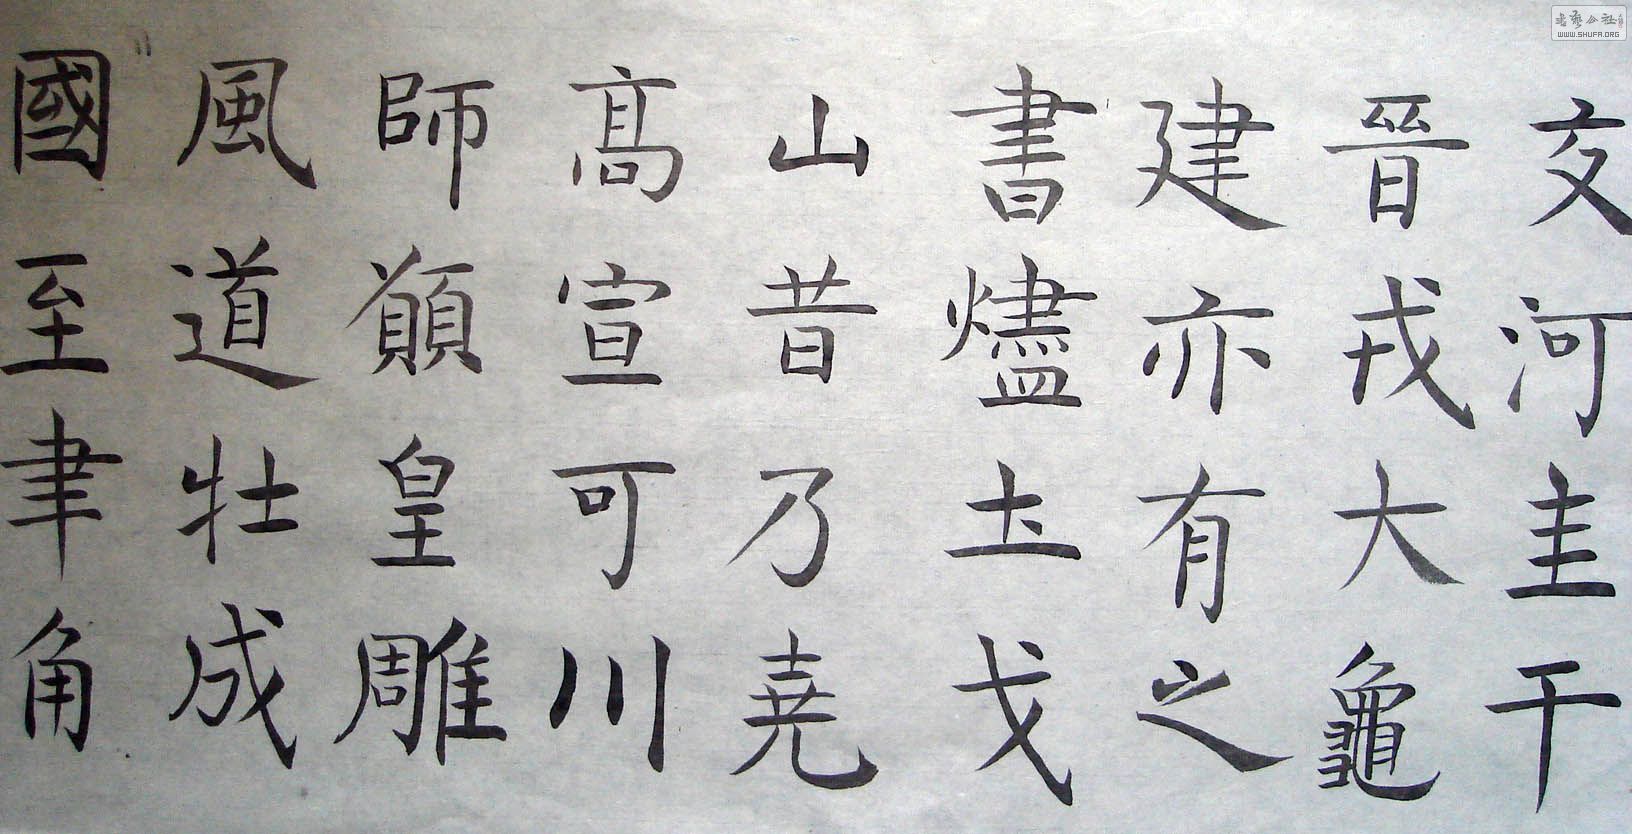 交河圭干
晉戎大龜
建亦有之
書燼土戈
山昔乃堯
高宣可川
師顛皇雕
風道牡成
國至聿角
書藝公社
WWW.SHUFA.ORG